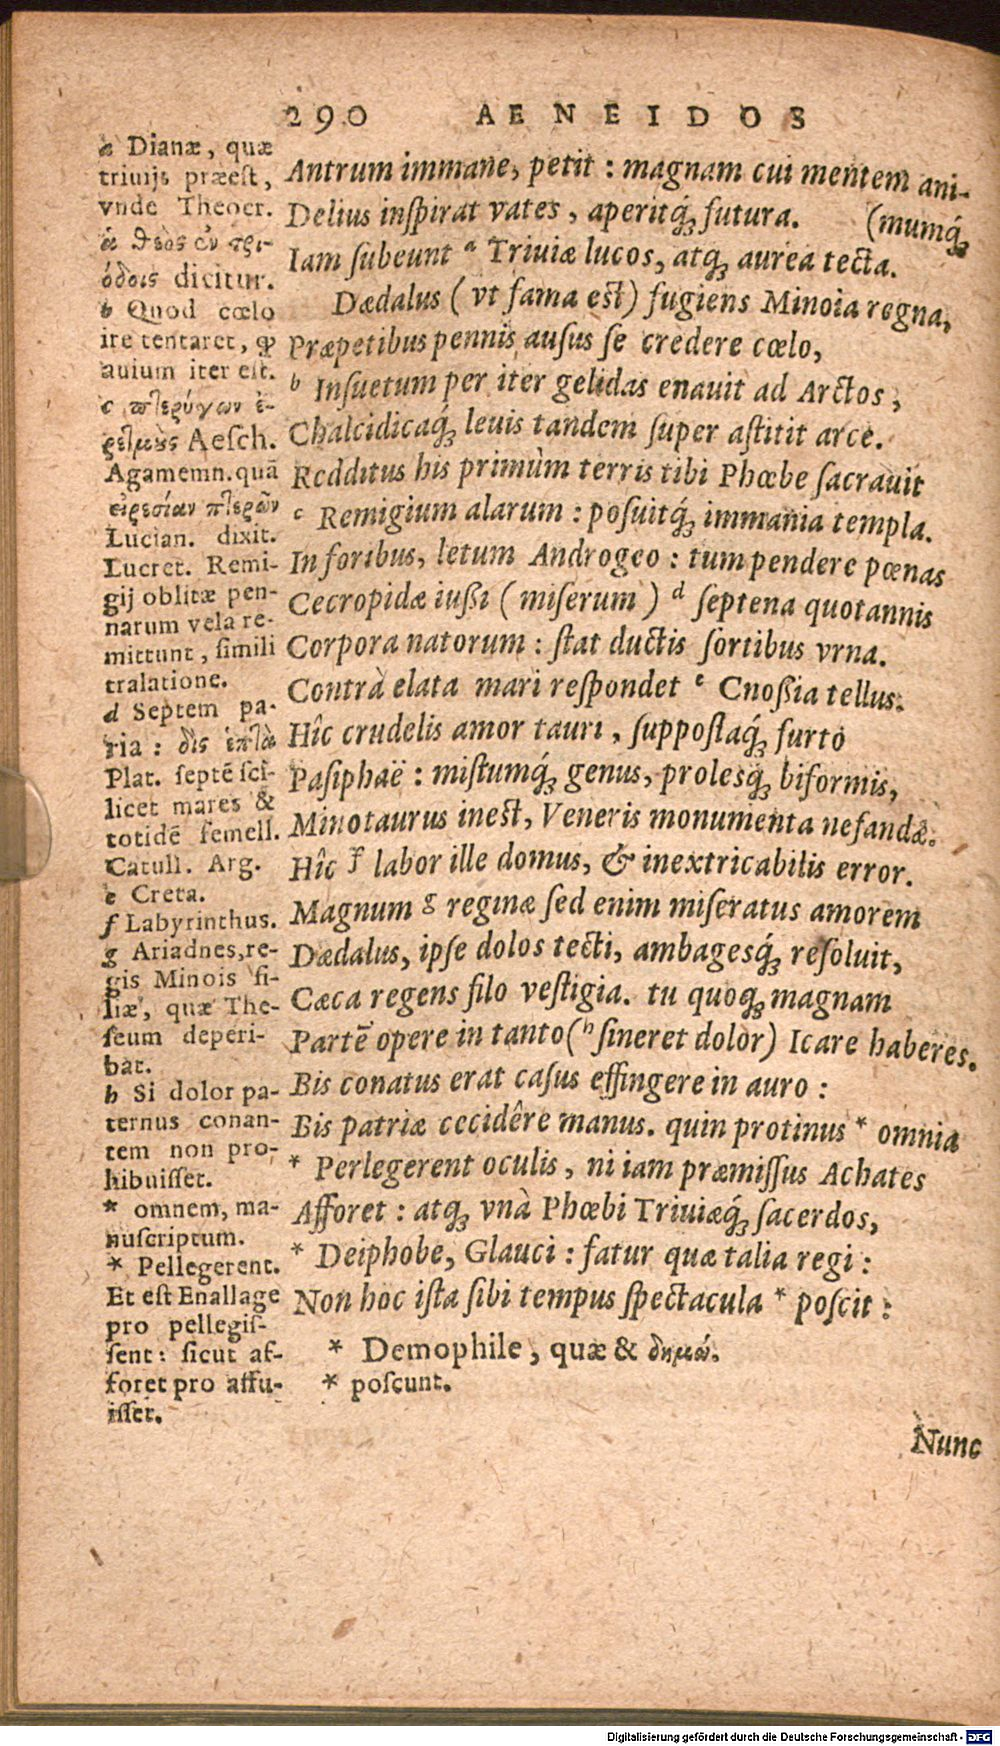 290 AENEIDOS
Antrum immane, petit : magnam cui mentem ani-
Delius inſpirat vates, aperitq́; futura. (mumq́;
Iam ſubeunt a Triuiæ lucos, atq; aurea tecta.
Dædalus (vt fama eſt) fugiens Minoia regna,
Præpetibus pennis auſus ſe credere cœlo,
b Inſuetum per iter gelidas enauit ad Arctos,
Chalcidicaq́; leuis tandem ſuper aſtitit arce.
Redditus his primùm terris tibi Phœbe ſacrauit
c Remigium alarum : poſuitq́; immania templa.
In foribus, letum Androgeo : tum pendere pœnas
Cecropidæ iußi (miſerum) d ſeptena quotannis
Corpora natorum : ſtat ductis ſortibus vrna.
Contrà elata mari reſpondet e Cnoßia tellus.
Hîc crudelis amor tauri, ſuppoſtaq́; furto
Paſiphaë : miſtumq́; genus, prolesq́; biformis,
Minotaurus ineſt, Veneris monumenta nefandæ.
Hîc f labor ille domus, & inextricabilis error.
Magnum g reginæ ſed enim miſeratus amorem
Dædalus, ipſe dolos tecti, ambagesq́; reſoluit,
Cæca regens filo veſtigia. tu quoq; magnam
Partē opere in tanto (h ſineret dolor) Icare haberes.
Bis conatus erat caſus effingere in auro :
Bis patriæ cecidêre manus. quin protinus * omnia
* Perlegerent oculis, ni iam præmiſſus Achates
Afforet : atq; vnà Phœbi Triuiæq́; ſacerdos,
* Deiphobe, Glauci : fatur quæ talia regi :
Non hoc iſta ſibi tempus ſpectacula * poſcit :
* Demophile, quæ & δημώ.
* poſcunt.
Nunc
a Dianæ, quæ
triuijs præeſt,
vnde Theocr.
ἁ θεὸς ἐν τρι-
όδοις dicitur.
b Quod cœlo
ire tentaret, q̀
auium iter eſt.
c πτερύγων ἐ-
ρετμοῖς Aeſch.
Agamemn. quā
εἰρεσίαν πτερῶν
Lucian. dixit.
Lucret. Remi-
gij oblitæ pen-
narum vela re-
mittunt, ſimili
tralatione.
d Septem pa-
ria : δὶς ἑπτὰ
Plat. ſeptē ſci-
licet mares &
totidē femell.
Catull. Arg.
e Creta.
f Labyrinthus.
g Ariadnes, re-
gis Minois fi-
liæ, quæ The-
ſeum deperi-
bat.
h Si dolor pa-
ternus conan-
tem non pro-
hibuiſſet.
* omnem, ma-
nuſcriptum.
* Pellegerent.
Et eſt Enallage
pro pellegiſ-
ſent : ſicut af-
foret pro affu-
iſſet.
Digitalisierung gefördert durch die Deutsche Forschungsgemeinschaft - DFG